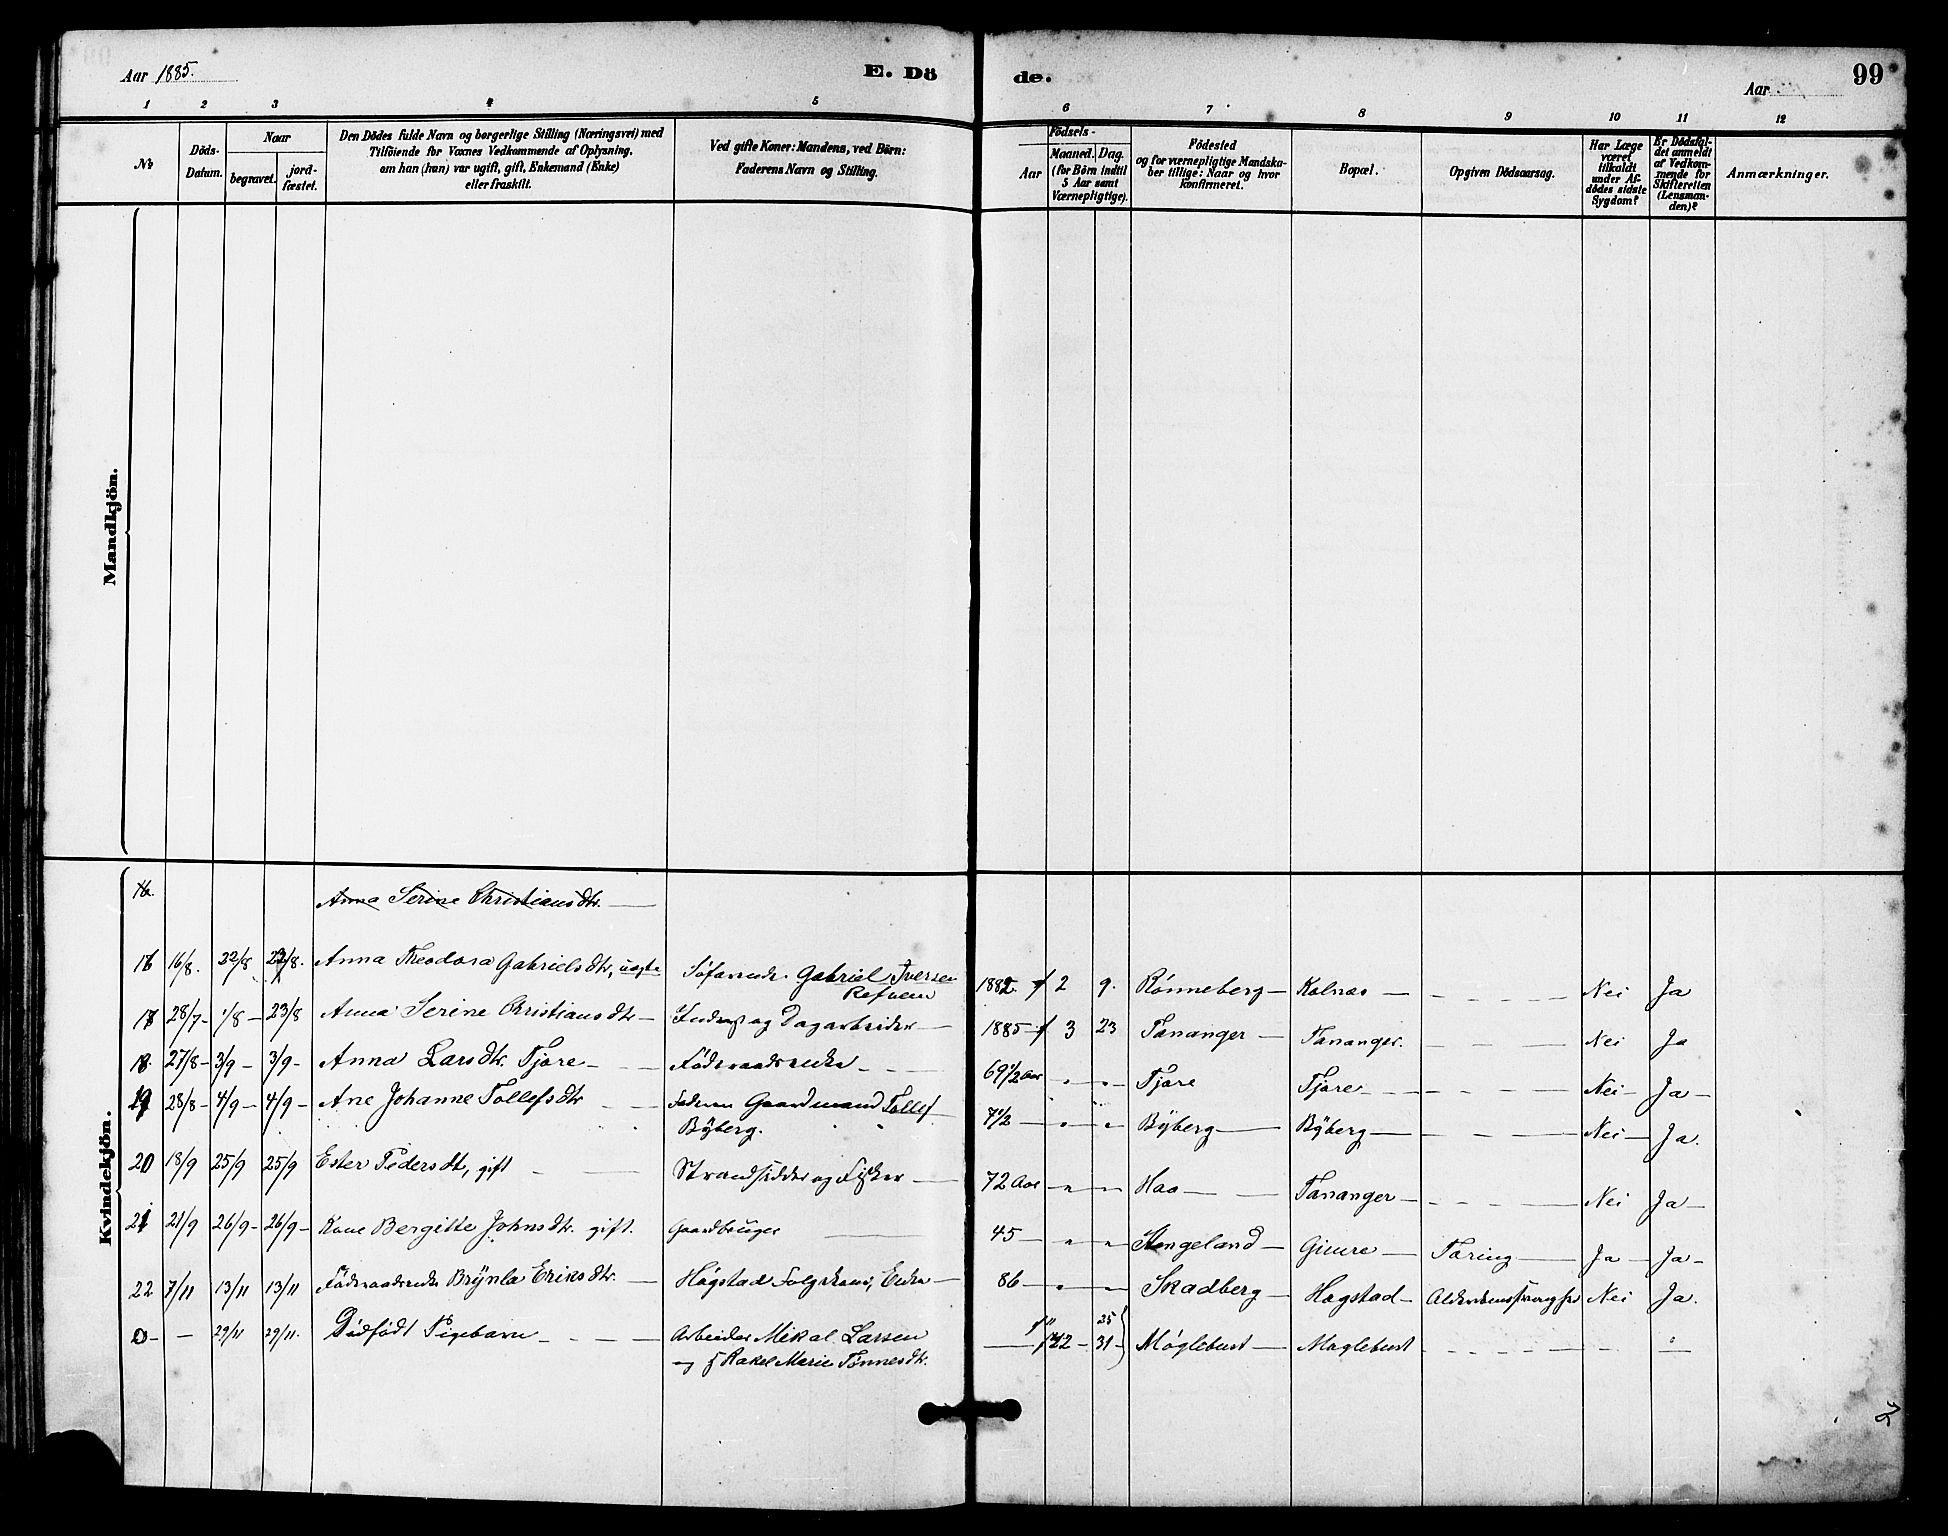 Aar 1885.
E. Dö
de.
Aar
99
1 2 3 4 5 6 7 8 9 10 11 12
No
Döds-
Datum.
Naar
begravet.
jord-
fæstet.
Den Dödes fulde Navn og borgerlige Stilling (Næringsvei) med
Tilföiende for Voxnes Vedkommende af Oplysning,
om han (hun) var ugift, gift, Enkemand (Enke)
eller fraskilt.
Ved gifte Koner: Mandens, ved Börn:
Faderens Navn og Stilling.
Födsels-
Aar
Maaned. Dag.
(for Börn indtil
5 Aar samt
Værnepligtige).
Födested
og for værnepligtige Mandska-
ber tillige: Naar og hvor
konfirmeret.
Bopæl.
Opgiven Dödsaarsag.
Har Læge
været
tilkaldt
under Af-
dödes sidste
Sygdom?
Er Dödsfal-
det anmeldt
af Vedkom-
mende for
Skifteretten
(Lensman-
den)?
Anmærkninger.
Mandkjön.
Kvindekjön.
16. Anna Serine Christiansdtr. —
16 16/8. 22/8 22/8. Anna Theodora Gabrielsdtr, uægte Søfarende Gabriel Iversen 1882. 2 9. Rønneberg — Kolnæs — Nei Ja
17 28/7 - 1/8 - 23/8 Anna Serine Christiansdtr — Inderst og Dagarbeider — 1885 3 23 Tananger — Tananger. Nei Ja
18. 27/8 - 3/9 - 3/9 - Anna Larsdtr. Tjore — 69 1/2 Aar " " Tjore Tjore — Nei — Ja —
19 28/8 - 4/9 - 4/9 - Ane Johanne Tollefsdtr Faderen Gaardmand Tollef 7 1/2 — " " Byberg — Byberg — Nei — Ja.
Byberg.
20 18/9 25/9 25/9 Ester Pedersdt, gift Strandsidder og Fisker — 72 Aar — " — Haa — Tananger — Nei Ja —
21 21/9 26/9 - 26/9 - Kone Bergitte Johnsdtr. gift. Gaardbruger 45 — " " Stangeland — Gimre — Tæring — Ja — Ja —
22 7/11 13/11 13/11 Føderaadsenke Brynla Eriksdtr. — Høgstad 86 — " Skadberg — Høgstad — Nei Ja.
0 — — 29/11 29/11. Dødfødt Pigebarn — Arbeider Mikal Larsen 25 31 Møglebust — Møglebust
Rakel Marie Tønnesdtr.